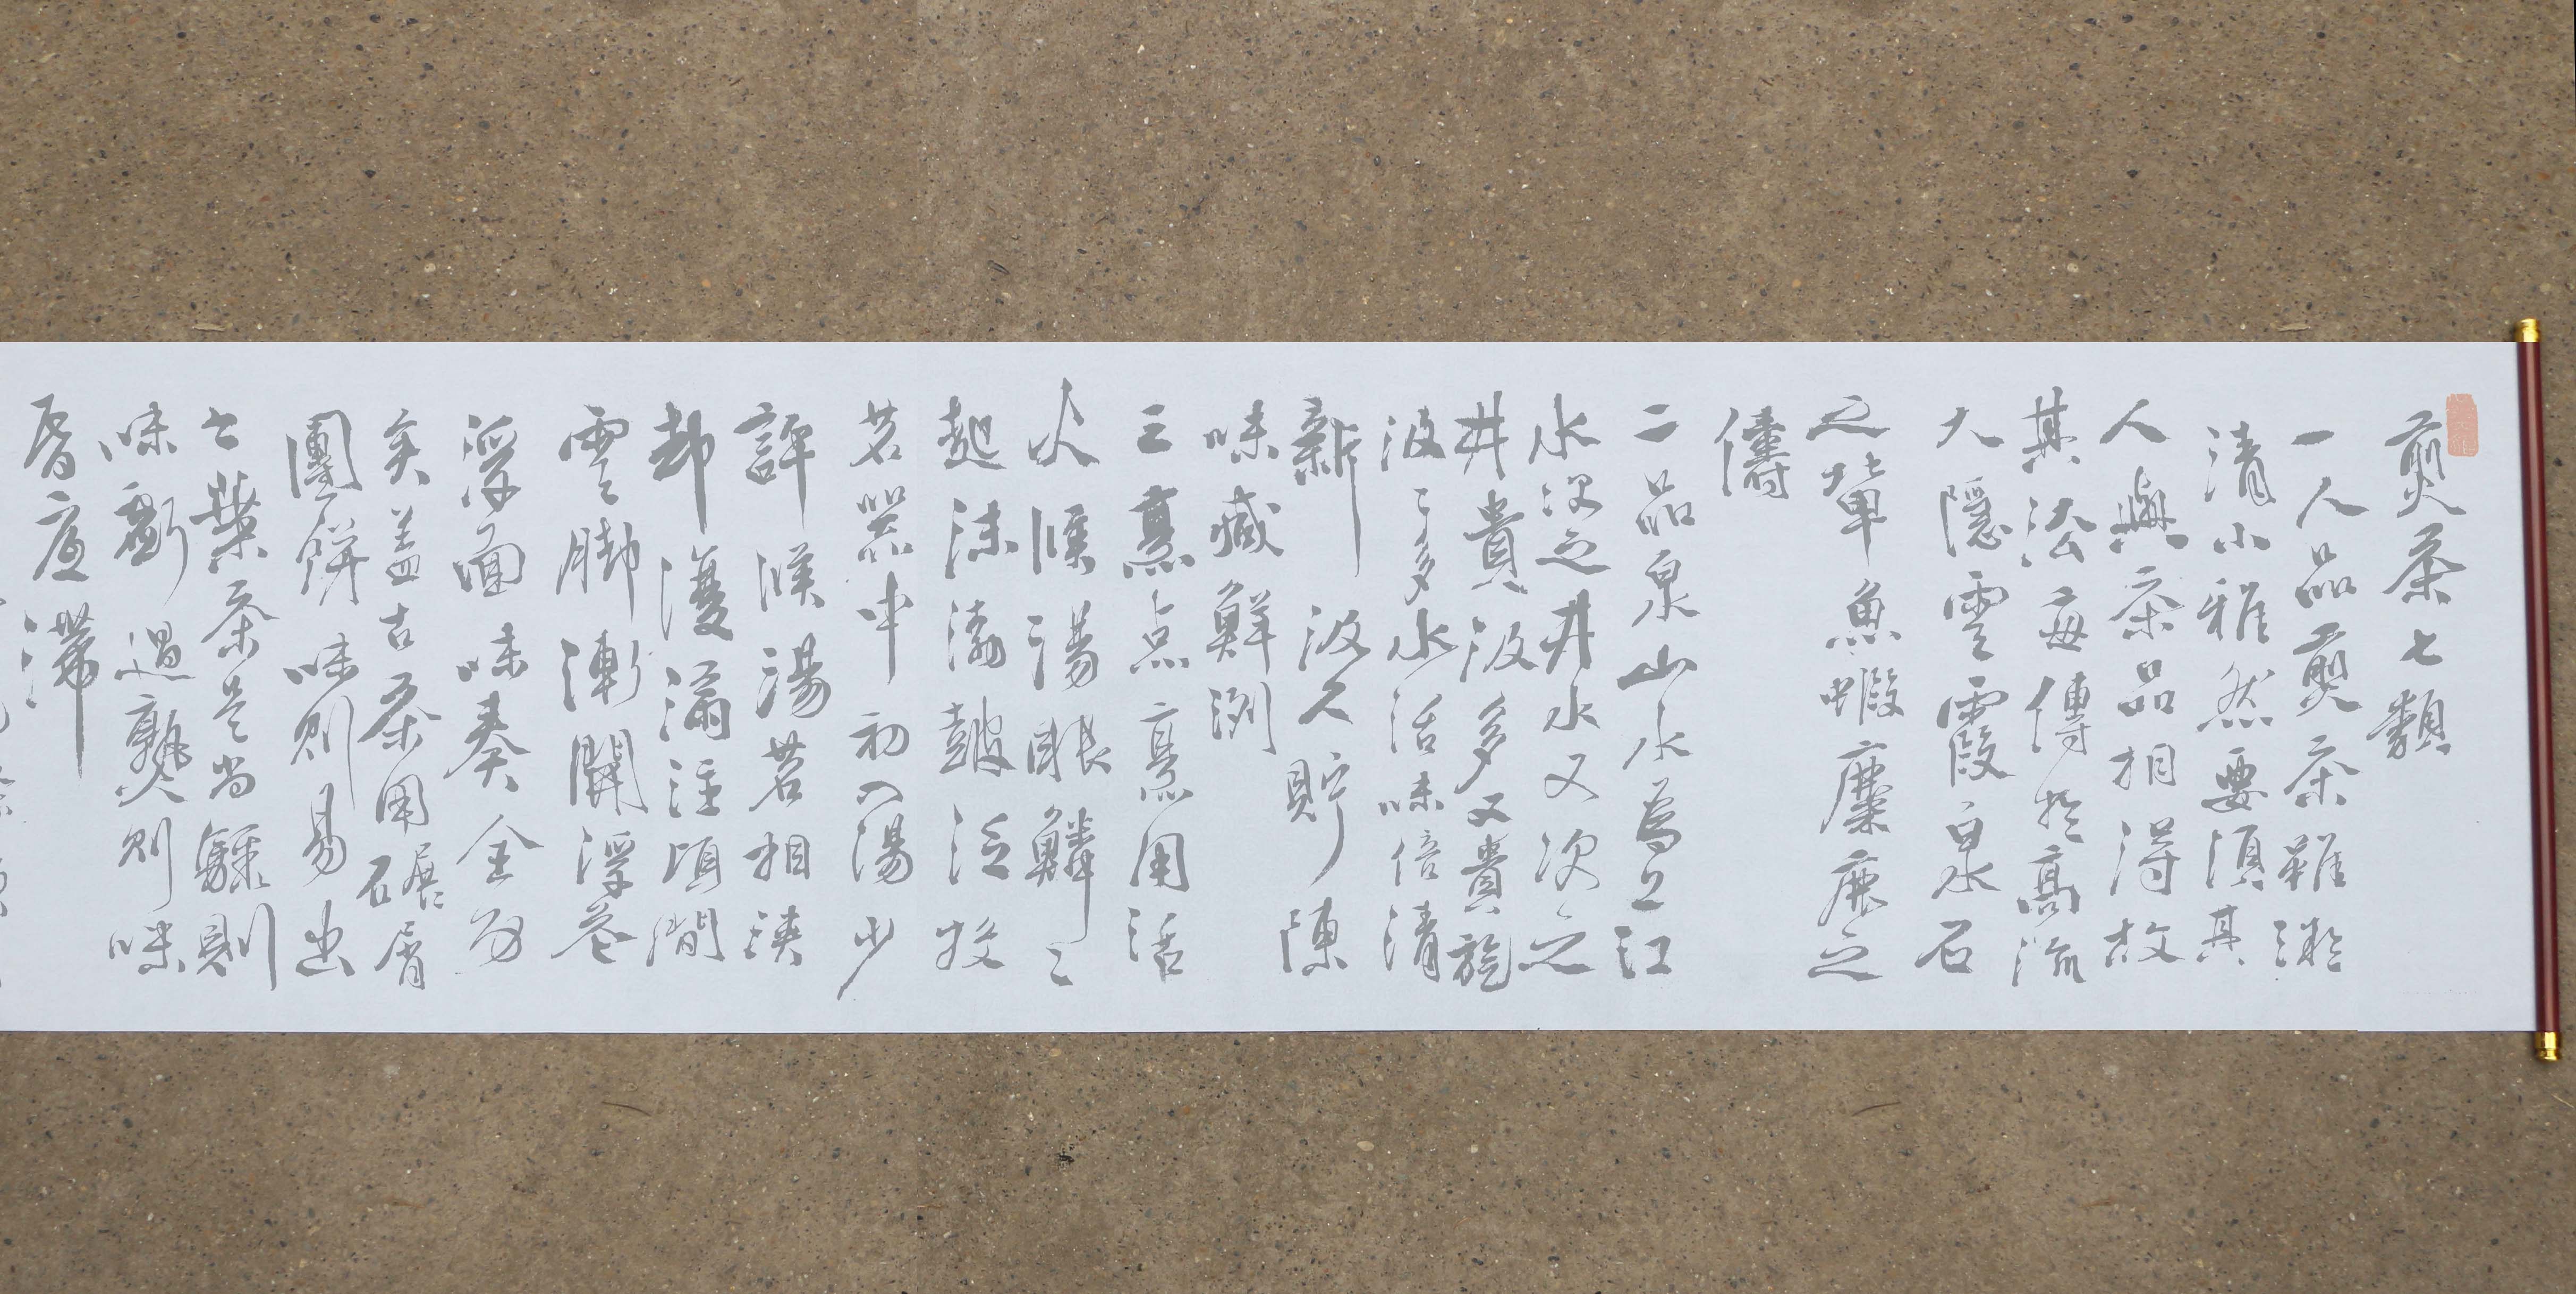 煎茶七類
一人品煎茶雖微
清小雅然要須其
人與茶品相得故
其法每傳於高流
大隱雲霞泉石
之輩魚蝦麋鹿之
儔
二品泉山水為上江
水次之井水又次之
井貴汲多又貴旋
汲々多水活味倍清
新汲久貯陳
味減鮮冽
三烹点烹用活
火候湯眼鱗々
起沫渤鼓泛投
茗器中初入湯少
許候湯茗相浹
卻復滿注頃間
雲脚漸開浮花
浮面味奏全功
矣蓋古茶用碾屑
團餅味則易出
今葉茶是尚驟則
味虧過熟則味
昏底滯